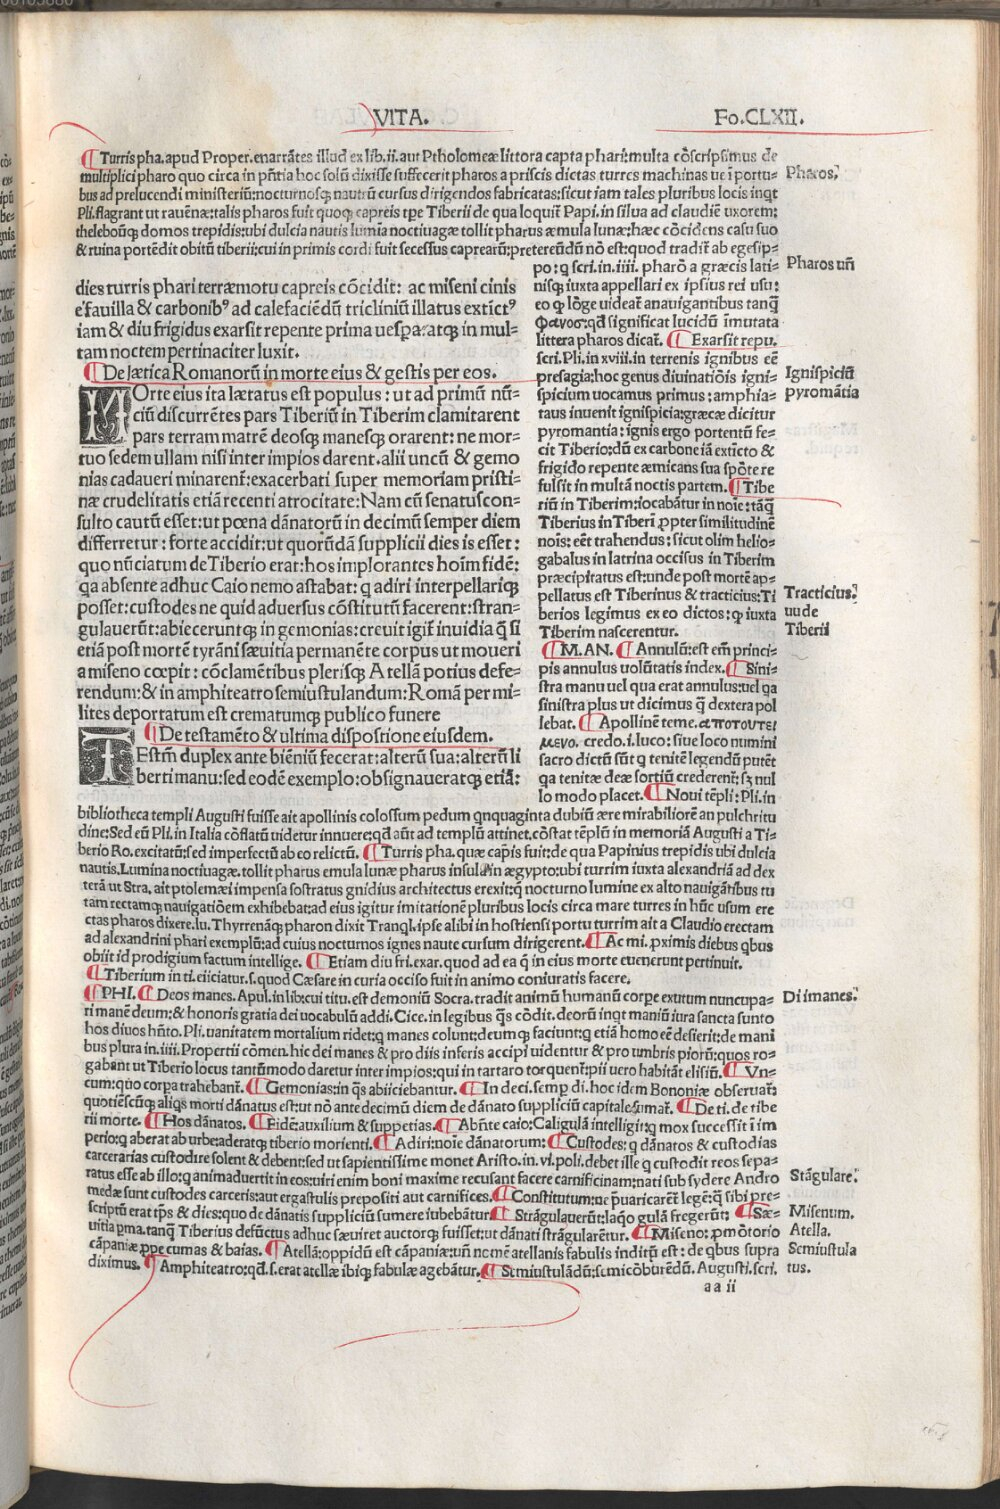 VITA.
Fo.CLXII.
¶ Turris pha.apud Proper.enarrātes illud ex lib.ii.aut Ptholomeæ littora capta phari:multa cōscripsimus de
multiplici pharo quo circa in pn̄tia hoc solū dixisse suffecerit pharos a priscis dictas turres machinas ue ī portu=
bus ad prelucendi ministeriū:nocturnosq; nautrū cursus dirigendos fabricatas:sicut iam tales pluribus locis inqt
Pli.flagrant ut rauēnæ:talis pharos fuit quoq; capreis tpe Tiberii de qua loquit Papi.in silua ad claudiē uxorem:
thelebonq; domos trepidis:ubi dulcia nautis lumia noctiuagæ tollit pharus æmula lunæ:hæc cōcidens casu suo
& ruina portēdit obitū tiberii:cui in primis cordi fuit secessus caprearū:pretereūdū nō est:quod tradit ab egesip=
Pharos.
Pharos un̄
dies turris phari terræmotu capreis cōcidit: ac miseni cinis
e fauilla & carbonib⁹ ad calefaciēdū tricliniū illatus extict⁹
iam & diu frigidus exarsit repente prima uespa:atq; in mul=
tam noctem pertinaciter luxit.
¶ De lætica Romanorū in morte eius & gestis per eos.
MOrte eius ita lætatus est populus : ut ad primū nū=
ciū discurrētes pars Tiberiū in Tiberim clamitarent
pars terram matrē deosq; manesq; orarent: ne mor=
tuo sedem ullam nisi inter impios darent.alii uncū & gemo
nias cadaueri minarent:exacerbati super memoriam pristi=
næ crudelitatis etiā recenti atrocitate: Nam cū senatuscon=
sulto cautū esset:ut pœna dānatorū in decimū semper diem
differretur : forte accidit:ut quorūdā supplicii dies is esset :
quo nūciatum de Tiberio erat:hos implorantes hoīm fidē:
qa absente adhuc Caio nemo astabat: q adiri interpellariq;
posset:custodes ne quid aduersus cōstitutū facerent:stran=
gulauerūt:abieceruntq; in gemonias:creuit igit inuidia q̄ si
etiā post mortē tyrāni sæuitia permanēte corpus ut moueri
a miseno cœpit : cōclamētibus plerisq; Atellā potius defe=
rendum:& in amphiteatro semiustulandum:Romā per mi=
lites deportatum est crematumq; publico funere
¶ De testamēto & ultima dispositione eiusdem.
TEstm̄ duplex ante biēniū fecerat:alterū sua:alterū li
berti manu:sed eodē exemplo:obsignaueratq; etiā:
po:q scri.in.iiii. pharō a græcis lati=
nisq; iuxta appellari ex ipsius rei usu:
eo q lōge uideat anauigantibus tanq̄
φανος:qd significat lucidū īmutata
littera pharos dicat. ¶ Exarsit repu.
scri.Pli.in xviii.in terrenis ignibus eē
presagia:hoc genus diuinatiōis igni=
spicium uocamus primus : amphia=
taus inuenit ignispicia:græcæ dicitur
pyromantia : ignis ergo portentū fe=
cit Tiberio:dū ex carbone iā extīcto &
frigido repente æmicans sua spōte re
fulsit in multā noctis partem. ¶ Tibe
riū in Tiberim:iocabātur in noīe:tāq̄
Tiberius in Tiberī ppter similitudinē
nois: eēt trahendus : sicut olim helio=
gabalus in latrina occisus in Tiberim
præcipitatus est:unde post mortē ap=
pellatus est Tiberinus & tracticius:Ti
berios legimus ex eo dictos:q iuxta
Tiberim nascerentur.
¶ M.AN. ¶ Annulū:est em̄ princi=
pis annulus volūtatis index. ¶ Sini=
stra manu uel qua erat annulus:uel qa
sinistra plus ut dicimus q̄ dextera pol
lebat. ¶ Apollinē teme. αποτουτει
μενο. credo.i.luco: siue loco numini
sacro dictū sūt q tenitē legendū putēt
qa tenitæ deæ sortiū crederent: sʒ nul
lo modo placet. ¶ Noui tēpli: Pli.in
Ignispiciū
pyromātia
Tracticius.
uude
Tiberii
bibliotheca templi Augusti fuisse ait apollinis colossum pedum qnquaginta dubiū ære mirabiliorē an pulchritu
dine:Sed eū Pli.in Italia cōflatū uidetur innuere:qd aūt ad templū attinet.cōstat tēplū in memoriā Augusti a Ti=
berio Ro.excitatū:sed imperfectū ab eo relictū. ¶ Turris pha.quæ capis fuit:de qua Papinius trepidis ubi dulcia
nautis.Lumina noctiuagæ.tollit pharus emula lunæ pharus insula in ægypto:ubi turrim iuxta alexandriā ad dex
terā ut Stra.ait ptolemæi impensa sostratus gnidius architectus erexit:q nocturno lumine ex alto nauigātibus tu
tam rectamq; nauigatiōem exhibebat:ad eius igitur imitationē pluribus locis circa mare turres in hūc usum ere
ctas pharos dixere.lu.Thyrrenāq; pharon dixit Tranql.ipse alibi in hostiensi portu turrim ait a Claudio erectam
ad alexandrini phari exemplū:ad cuius nocturnos ignes naute cursum dirigerent. ¶ Ac mi.pximis diebus qbus
obiit id prodigium factum intellige. ¶ Etiam diu fri.exar.quod ad ea q̄ in eius morte euenerunt pertinuit.
¶ Tiberium in ti.eiiciatur.s.quod Cæsare in curia occiso fuit in animo coniuratis facere.
¶ PHI. ¶ Deos manes.Apul.in lib:cui titu.est demoniū Socra.tradit animū humanū corpe exutum nuncupa=
ri manē deum:& honoris gratia dei uocabulū addi.Cice.in legibus q̄s cōdit.deorū inqt maniū iura sancta sunto
hos diuos hn̄to.Pli.uanitatem mortalium ridet:q manes colunt:deumq; faciunt:q etiā homo eē desierit:de mani
bus plura in.iiii.Propertii cōmen.hic dei manes & pro diis inferis accipi uidentur & pro umbris piorū:quos ro=
gabant ut Tiberio locus tantūmodo daretur inter impios:qui in tartaro torquent:pii uero habitāt elisiū. ¶ Vn=
cum:quo corpa trahebant. ¶ Gemonias:in q̄s abiiciebantur. ¶ In deci.semp di.hoc idem Bononiæ obseruat:
quotiēscūq; aliqs morti dānatus est:ut nō ante decimū diem de dānato suppliciū capitale sumat. ¶ De ti. de tibe
rii morte. ¶ Hos dānatos. ¶ Fidē:auxilium & suppetias. ¶ Abn̄te caio:Caligulā intelligit:q mox successit ī im
perio:q aberat ab urbe:aderatq; tiberio morienti. ¶ Adiri:noīe dānatorum: ¶ Custodes:q dānatos & custodias
carcerarias custodire solent & debent:sed ut sapientissime monet Aristo.in.vi.poli.debet ille q custodit reos sepa=
ratus esse ab illo:q animaduertit in eos:uiri enim boni maxime recusant facere carnificinam:nati sub sydere Andro
medæ sunt custodes carceris:aut ergastulis prepositi aut carnifices. ¶ Constitutum:ne p̄uaricarēt legē:q̄ sibi pre=
scriptū erat tp̄s & dies:quo de dānatis suppliciū sumere iubebātur ¶ Strāgulauerūt:laq̄o gulā fregerūt: ¶ Sæ=
uitia pma.tanq̄ Tiberius defūctus adhuc sæuiret auctorq; fuisset:ut dānati strāgularētur. ¶ Miseno: pmōtorio
cāpaniæ ppe cumas & baias. ¶ Atellā:oppidū est cāpaniæ:un̄ nomē atellanis fabulis inditū est : de qbus supra
diximus. ¶ Amphiteatro:qd.s.erat atellæ ibiq; fabulæ agebātur. ¶ Semiustulādū:semicōburēdū. Augusti.scri.
Di imanes.
Stāgulare.
Misenum.
Atella.
Semiustula
tus.
aa ii